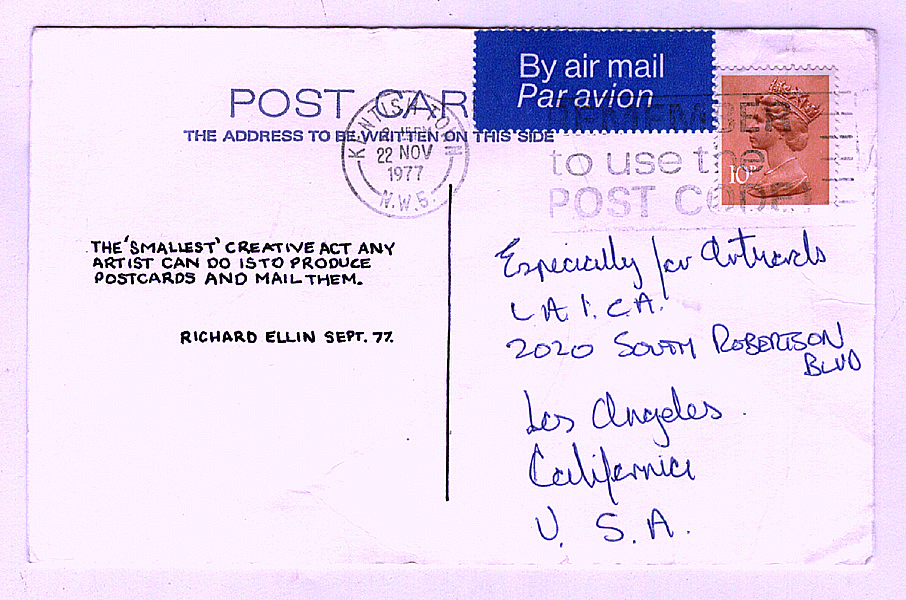 By air mail
Par avion
POST CAR
THE ADDRESS TO BE WRITTEN ON THIS SIDE
KENTISH TOWN
22 NOV
1977
N.W.5.
REMEMBER
to use the
POST CODE
10P
THE 'SMALLEST' CREATIVE ACT ANY
ARTIST CAN DO IS TO PRODUCE
POSTCARDS AND MAIL THEM.
RICHARD ELLIN SEPT. 77.
Especially for Artwords
L.A.I.C.A.
2020 SOUTH ROBERTSON
BLVD
Los Angeles.
California
U. S. A.